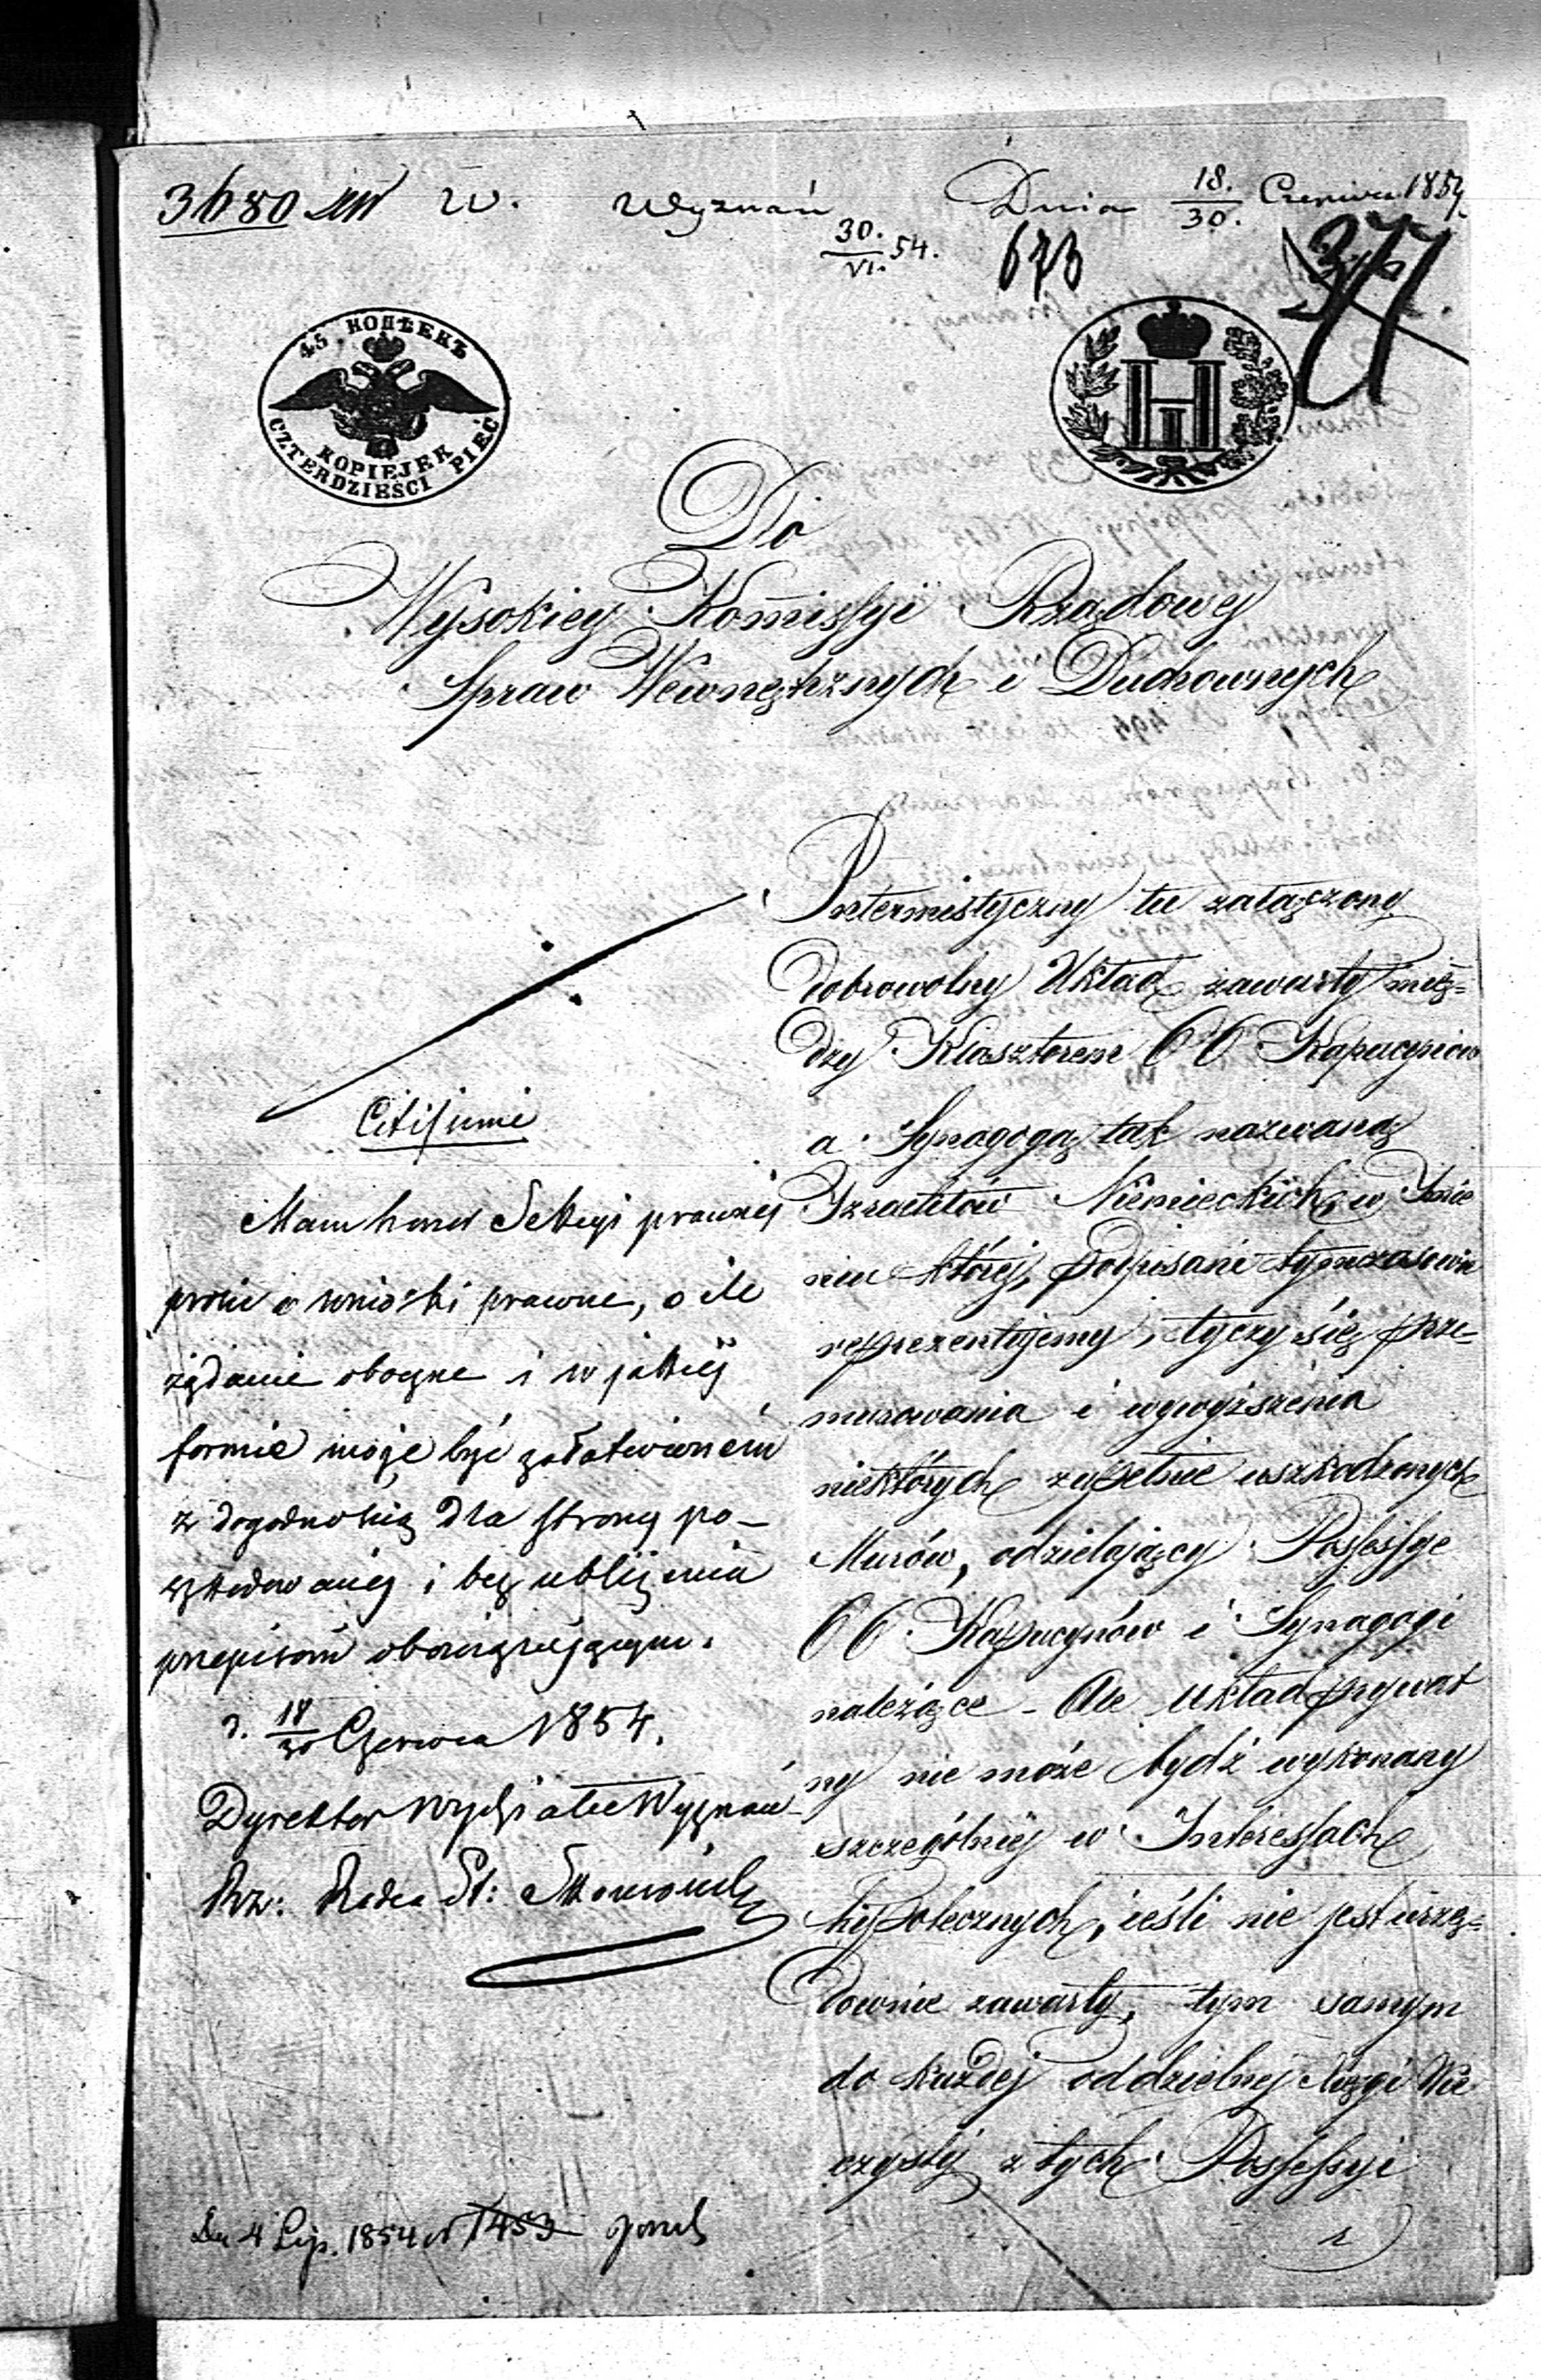 3680 W. Wyznań Dnia 18./30. Czerwca 1854.
30./VI. 54.
673
377
45 КОПѢЕКЪ
KOPIEJEK
CZTERDZIEŚCI PIĘĆ
Н I
Do
Wysokiey Kommissyi Rządowey
Spraw Wewnętrznych i Duchownych
Intermistyczny tu załączony
dobrowolny Układ zawarty mię=
dzy Klasztorem OO Kapucynów
a Synagogą tak nazwaną
Izraelitów Niemieckich w Imie
niu któréj, podpisani tymczasowie
reprezentujemy, tyczy się prze=
murowania i wywyższenia
niektórych zupełnie uszkodzonych
Murów, odzielający Possessye
OO Kapucynów i Synagogi
należące - Ale układ prywat
ny nie może bydź wykonany
szczególniéj w Interessach
hipotecznych, ieśli nie jest urzę=
downie zawarty, tym samym
do każdej oddzielnej Xięgi Wie
czystéj z tych Possessyi
Citissime
Mam honor Sekcyi prawnej
prosić o wnioski prawne, o ile
żądanie oboczne i w jakiéj
formie może być załatwioném
z dogodnością dla strony po-
szkodowanéj i bez ubliżenia
przepisom obowiązującym.
d. 18/30 Czerwca 1854.
Dyrektor Wydziału Wyznań
Rz: Radca St:
Dn 4 Lip. 1854 N 1453